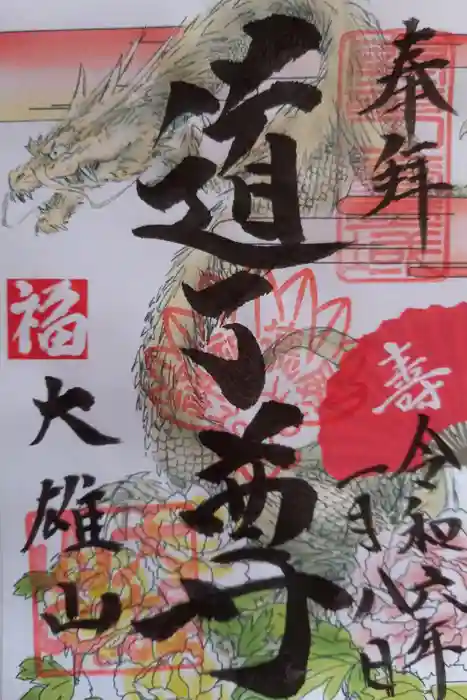 奉拝
壽
令和六年
一月八日
道了尊
福
大雄山